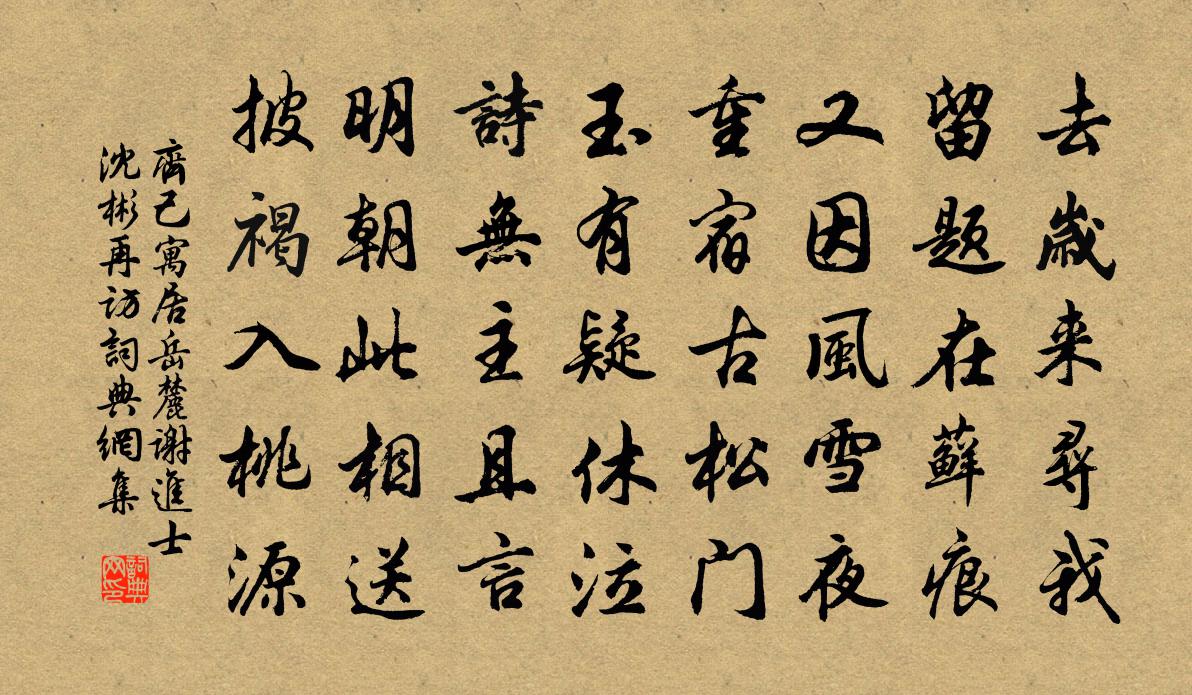 去歲来尋我
留题在蘚痕
又因風雪夜
重宿古松门
玉有疑休泣
詩無主且言
明朝此相送
披褐入桃源
齊己寓居岳麓谢進士
沈彬再访詞典網集
詞典网印